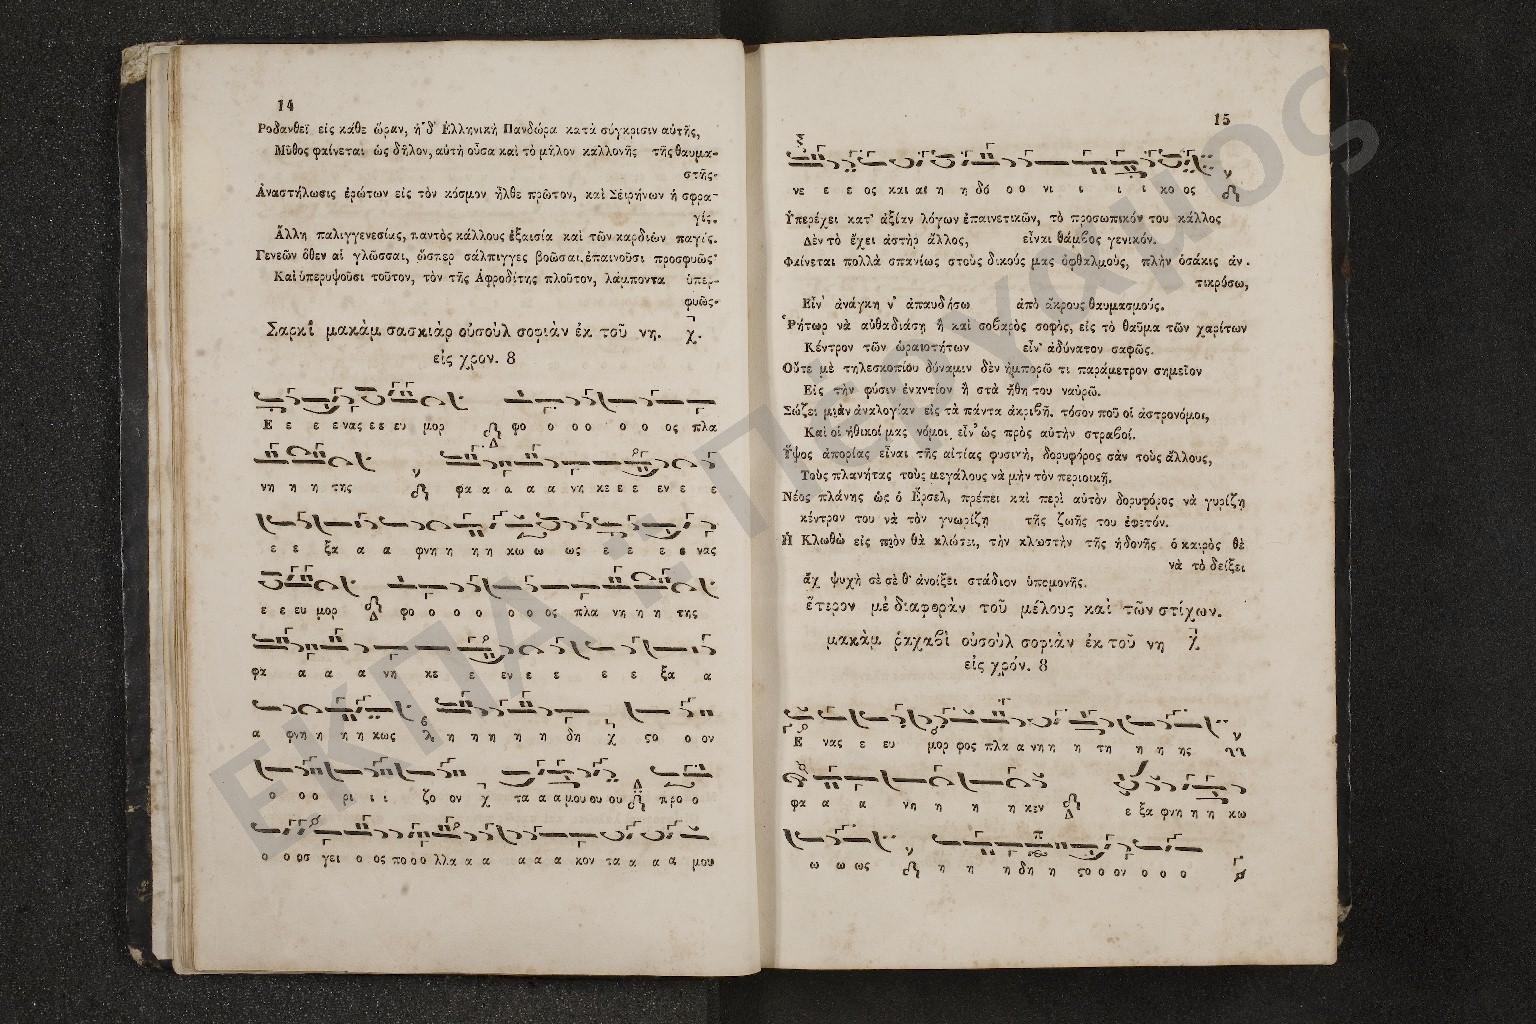 14
Ροδανθεῖ εἰς κάθε ὥραν, ἡ δ' Ἑλληνικὴ Πανδώρα κατὰ σύγκρισιν αὐτῆς,
Μῦθος φαίνεται ὡς δῆλον, αὐτὴ οὖσα καὶ τὸ μῆλον καλλονῆς τῆς θαυμα-
στῆς.
Ἀναστήλωσις ἐρώτων εἰς τὸν κόσμον ἦλθε πρῶτον, καὶ Σειρήνων ἡ σφρα-
γίς.
Ἄλλη παλιγγενεσίας, παντὸς κάλλους ἐξαισία καὶ τῶν καρδιῶν παγίς.
Γενεῶν ὅθεν αἱ γλῶσσαι, ὥσπερ σάλπιγγες βοῶσαι, ἐπαινοῦσι προσφυῶς·
Καὶ ὑπερυψοῦσι τοῦτον, τὸν τῆς Ἀφροδίτης πλοῦτον, λάμποντα ὑπερ-
φυῶς.
Σαρκὶ μακὰμ σασκιὰρ οὐσοὺλ σοφιὰν ἐκ τοῦ νη. χ.
εἰς χρον. 8
Ε ε ε ε νας ε ε ευ μορ φο ο ο ο ο ο ος πλα
νη η η της φα α α α α νη κε ε ε εν ε ε
ε ε ξα α α φνη η η η κω ω ως ε ε ε ε νας
ε ε ευ μορ φο ο ο ο ο ο ος πλα νη η η της
φα α α α νη κε ε εν ε ε ε ε ξα α
α φνη η η η κως λη η η η η δη χ ςο ο ον
ο ο ο ρι ι ι ζο ον χ τα α α μου ου ου προ ο
ο ο ος γει ο ος πο ο ο λλα α α α α α κον τα α α α μου
15
νε ε ε ος και αι η η δο ο ο νι ι ι ι κο ος
Ὑπερέχει κατ' ἀξίαν λόγων ἐπαινετικῶν, τὸ προσωπικόν του κάλλος
Δὲν τὸ ἔχει ἀστὴρ ἄλλος, εἶναι θάμβος γενικόν.
Φαίνεται πολλὰ σπανίως στοὺς δικούς μας ὀφθαλμούς, πλὴν ὁσάκις ἀν.
τικρύσω,
Εἶν' ἀνάγκη ν' ἀπαυδήσω ἀπὸ ἄκρους θαυμασμούς.
Ῥήτωρ νὰ αὐθαδιάσῃ ἢ καὶ σοβαρὸς σοφός, εἰς τὸ θαῦμα τῶν χαρίτων
Κέντρον τῶν ὡραιοτήτων εἶν' ἀδύνατον σαφῶς.
Οὔτε μὲ τηλεσκοπίου δύναμιν δὲν ἠμπορῶ τι παράμετρον σημεῖον
Εἰς τὴν φύσιν ἐναντίον ἢ στὰ ἤθη του ναὑρῶ.
Σώζει μιὰν ἀναλογίαν εἰς τὰ πάντα ἀκριβῆ. τόσον ποῦ οἱ ἀστρονόμοι,
Καὶ οἱ ἠθικοί μας νόμοι εἶν' ὡς πρὸς αὐτὴν στραβοί.
Ὕψος ἀπορίας εἶναι τῆς αἰτίας φυσινὴ, δορυφόρος σὰν τοὺς ἄλλους,
Τοὺς πλανήτας τοὺς μεγάλους νὰ μὴν τὸν περιοικῇ.
Νέος πλάνης ὡς ὁ Ἔρσελ, πρέπει καὶ περὶ αὐτὸν δορυφόρος νὰ γυρίζῃ
κέντρον του νὰ τὸν γνωρίζῃ τῆς ζωῆς του ἐφετόν.
Ἡ Κλωθὼ εἰς ποιὸν θὰ κλώσει, τὴν κλωστὴν τῆς ἡδονῆς ὁ καιρὸς θὲ
νὰ τὸ δείξει
ἄχ ψυχὴ σὲ σὲ θ' ἀνοίξει στάδιον ὑπομονῆς.
ἕτερον μὲ διαφορὰν τοῦ μέλους καὶ τῶν στίχων.
μακὰμ ῥαχαβὶ οὐσοὺλ σοφιὰν ἐκ τοῦ νη χ
εἰς χρόν. 8
Ε νας ε ευ μορ φος πλα α νη η η τη η η ης
φα α α νη η η η κεν ε ξα φνη η η κω
ω ω ως η η η δη η ςο ο ον ο ο ο
ΕΚΠΑ :: Πέργαμος